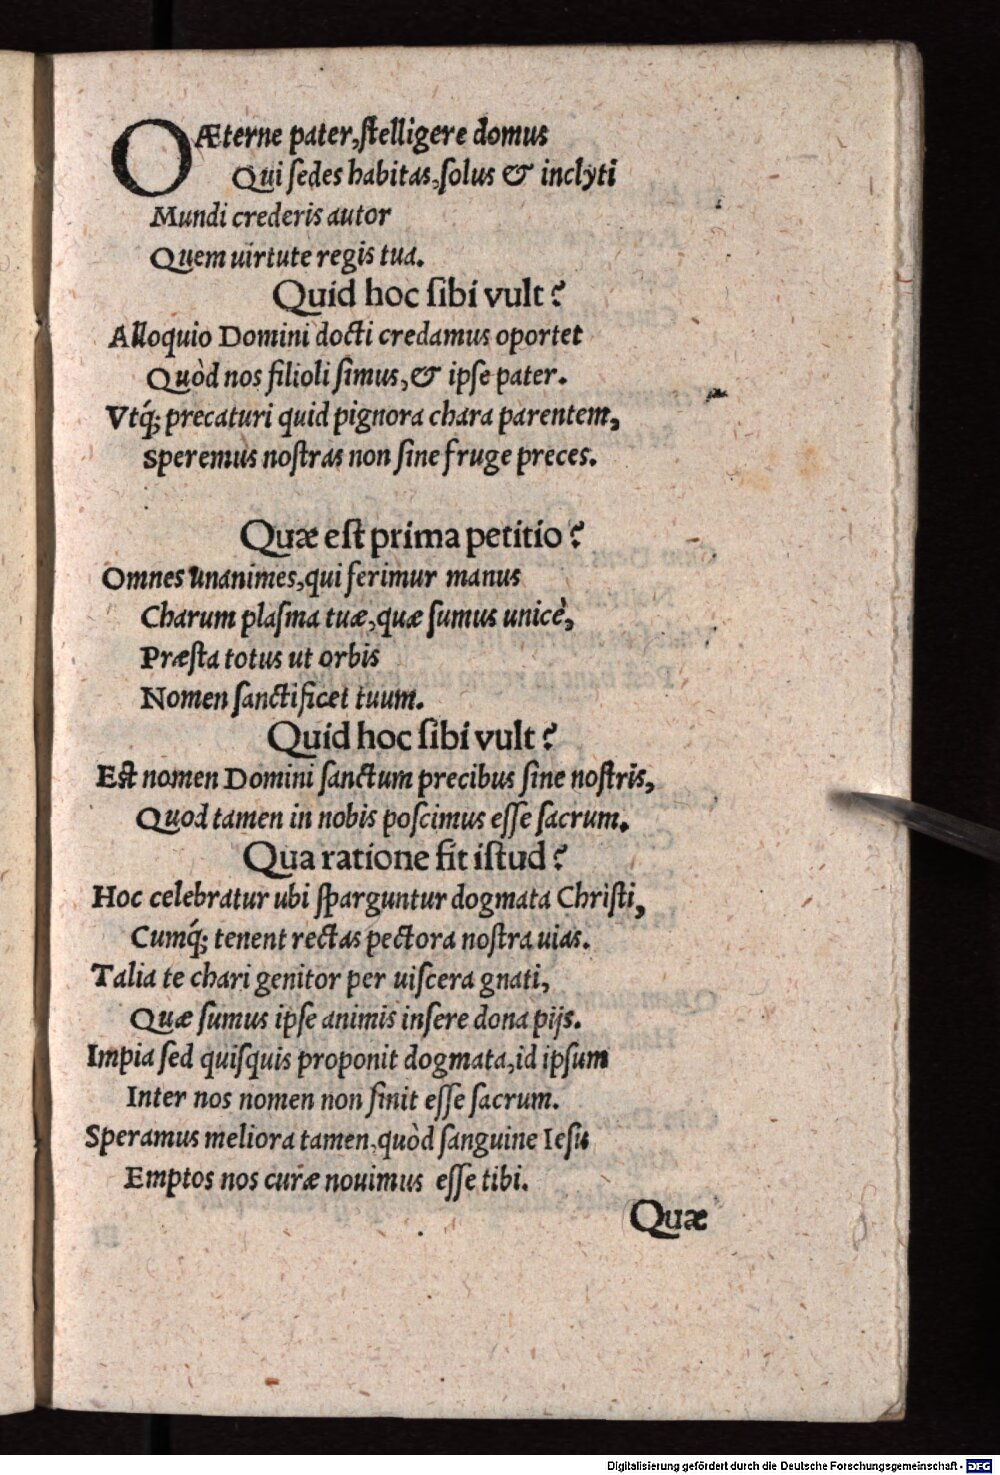 O Æterne pater, ſtelligere domus
Qui ſedes habitas, ſolus & inclyti
Mundi crederis autor
Quem uirtute regis tua.
Quid hoc ſibi vult?
Alloquio Domini docti credamus oportet
Quòd nos filioli ſimus, & ipſe pater.
Vtq́; precaturi quid pignora chara parentem,
Speremus noſtras non ſine fruge preces.
Quæ eſt prima petitio?
Omnes unanimes, qui ferimur manus
Charum plaſma tuæ, quæ ſumus unicè,
Præſta totus ut orbis
Nomen ſanctificet tuum.
Quid hoc ſibi vult?
Eſt nomen Domini ſanctum precibus ſine noſtris,
Quod tamen in nobis poſcimus eſſe ſacrum.
Qua ratione fit iſtud?
Hoc celebratur ubi ſparguntur dogmata Chriſti,
Cumq́; tenent rectas pectora noſtra uias.
Talia te chari genitor per uiſcera gnati,
Quæ ſumus ipſe animis inſere dona pijs.
Impia ſed quiſquis proponit dogmata, id ipſum
Inter nos nomen non ſinit eſſe ſacrum.
Speramus meliora tamen, quòd ſanguine Ieſu
Emptos nos curæ nouimus eſſe tibi.
Quæ
Digitalisierung gefördert durch die Deutsche Forschungsgemeinschaft - DFG